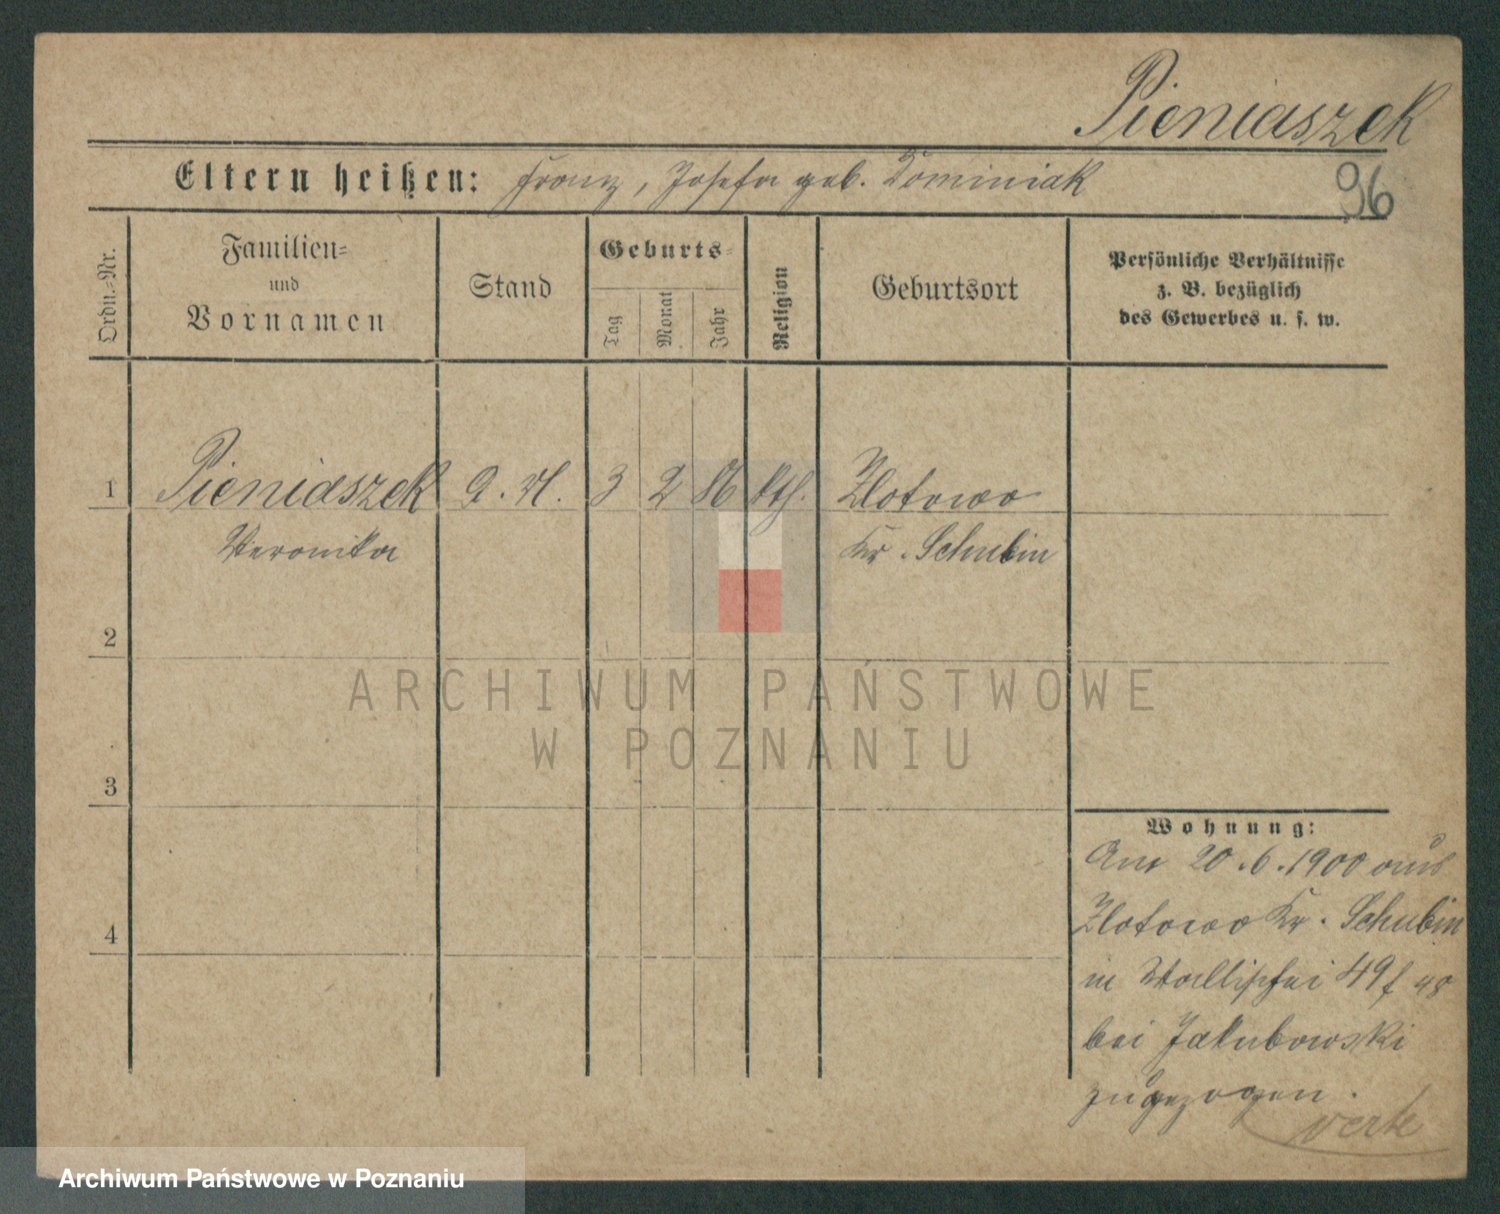 Pieniaszek
Eltern heißen: Franz, Josefa geb. Dominiak
96
Ordn.-Nr.
Familien-
und
Vornamen
Stand
Geburts-
Tag
Monat
Jahr
Religion
Geburtsort
Persönliche Verhältnisse
z. B. bezüglich
des Gewerbes u. s. w.
1 Pieniaszek 3 2 86 kth. Zlotowo
Veronika Kr. Schubin
2
ARCHIWUM PAŃSTWOWE
W POZNANIU
3
Wohnung:
Am 20.6.1900 aus
Zlotowo Kr. Schubin
in 49
4
bei Jakubowski
zugezogen.
verte
Archiwum Państwowe w Poznaniu